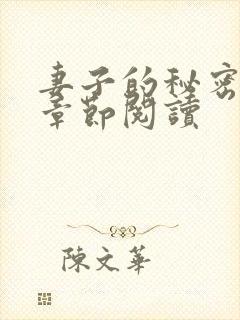 妻子的秘密
章節閱讀
陳文華